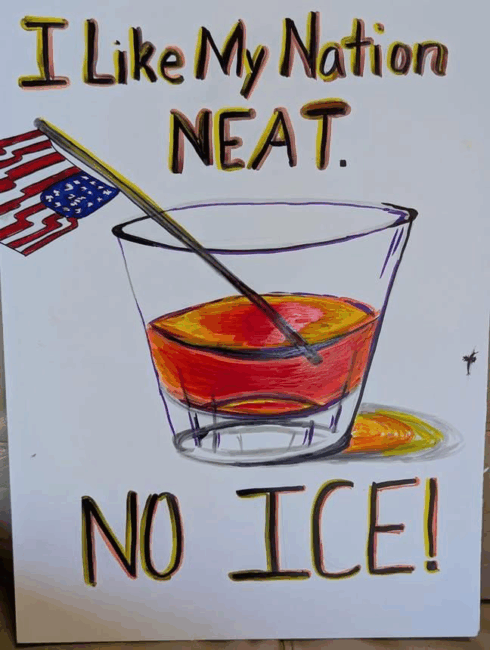 I Like My Nation
NEAT.
NO ICE!